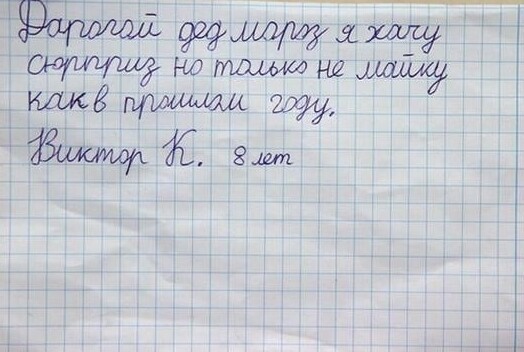 Дарогой дед мороз я хачу
сюрприз но только не майку
как в прошлом году.
Виктор К. 8 лет